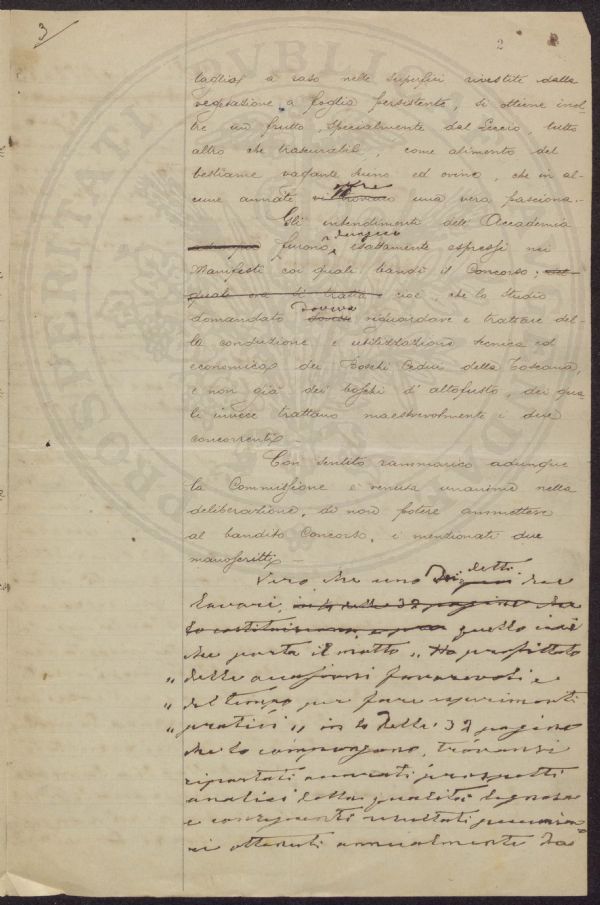 3
2
taglio a raso nelle superfici rivestite dalla
vegetazione a foglia persistente, si ottiene inol-
tre un frutto, specialmente dal Leccio, tutto
altro che trascurabile, come alimento del
bestiame vagante suino ed ovino, che in al-
cune annate offre una vera pasciona.
Gli intendimenti dell'Accademia
furono, dunque esattamente espressi nei
Manifesti coi quali bandì il Concorso;
quale ora si tratta cioè, che lo Studio
domandato doveva dovesse riguardare e trattare del-
la conduzione e utilizzazione tecnica ed
economica dei Boschi Cedui della Toscana,
e non già dei boschi d'altofusto, dei qua-
li invece trattano maestrevolmente i due
concorrenti.
Con sentito rammarico adunque
la Commissione è venuta unanime nella
deliberazione, di non potere ammettere
al bandito Concorso, i mentovati due
manoscritti.
Vero che uno dei detti due
lavori, in 4 delle 32 pagine che
lo costituiscono, e quello cioè
che porta il motto „ Ho profittato
„ delle occasioni favorevoli e
„ del tempo per fare esperimenti
„ pratici „ in 4 delle 32 pagine
che lo compongono, trovansi
riportati accurati prospetti
analici della qualità legnosa
e conseguenti resultati pecunia-
ri ottenuti annualmente da